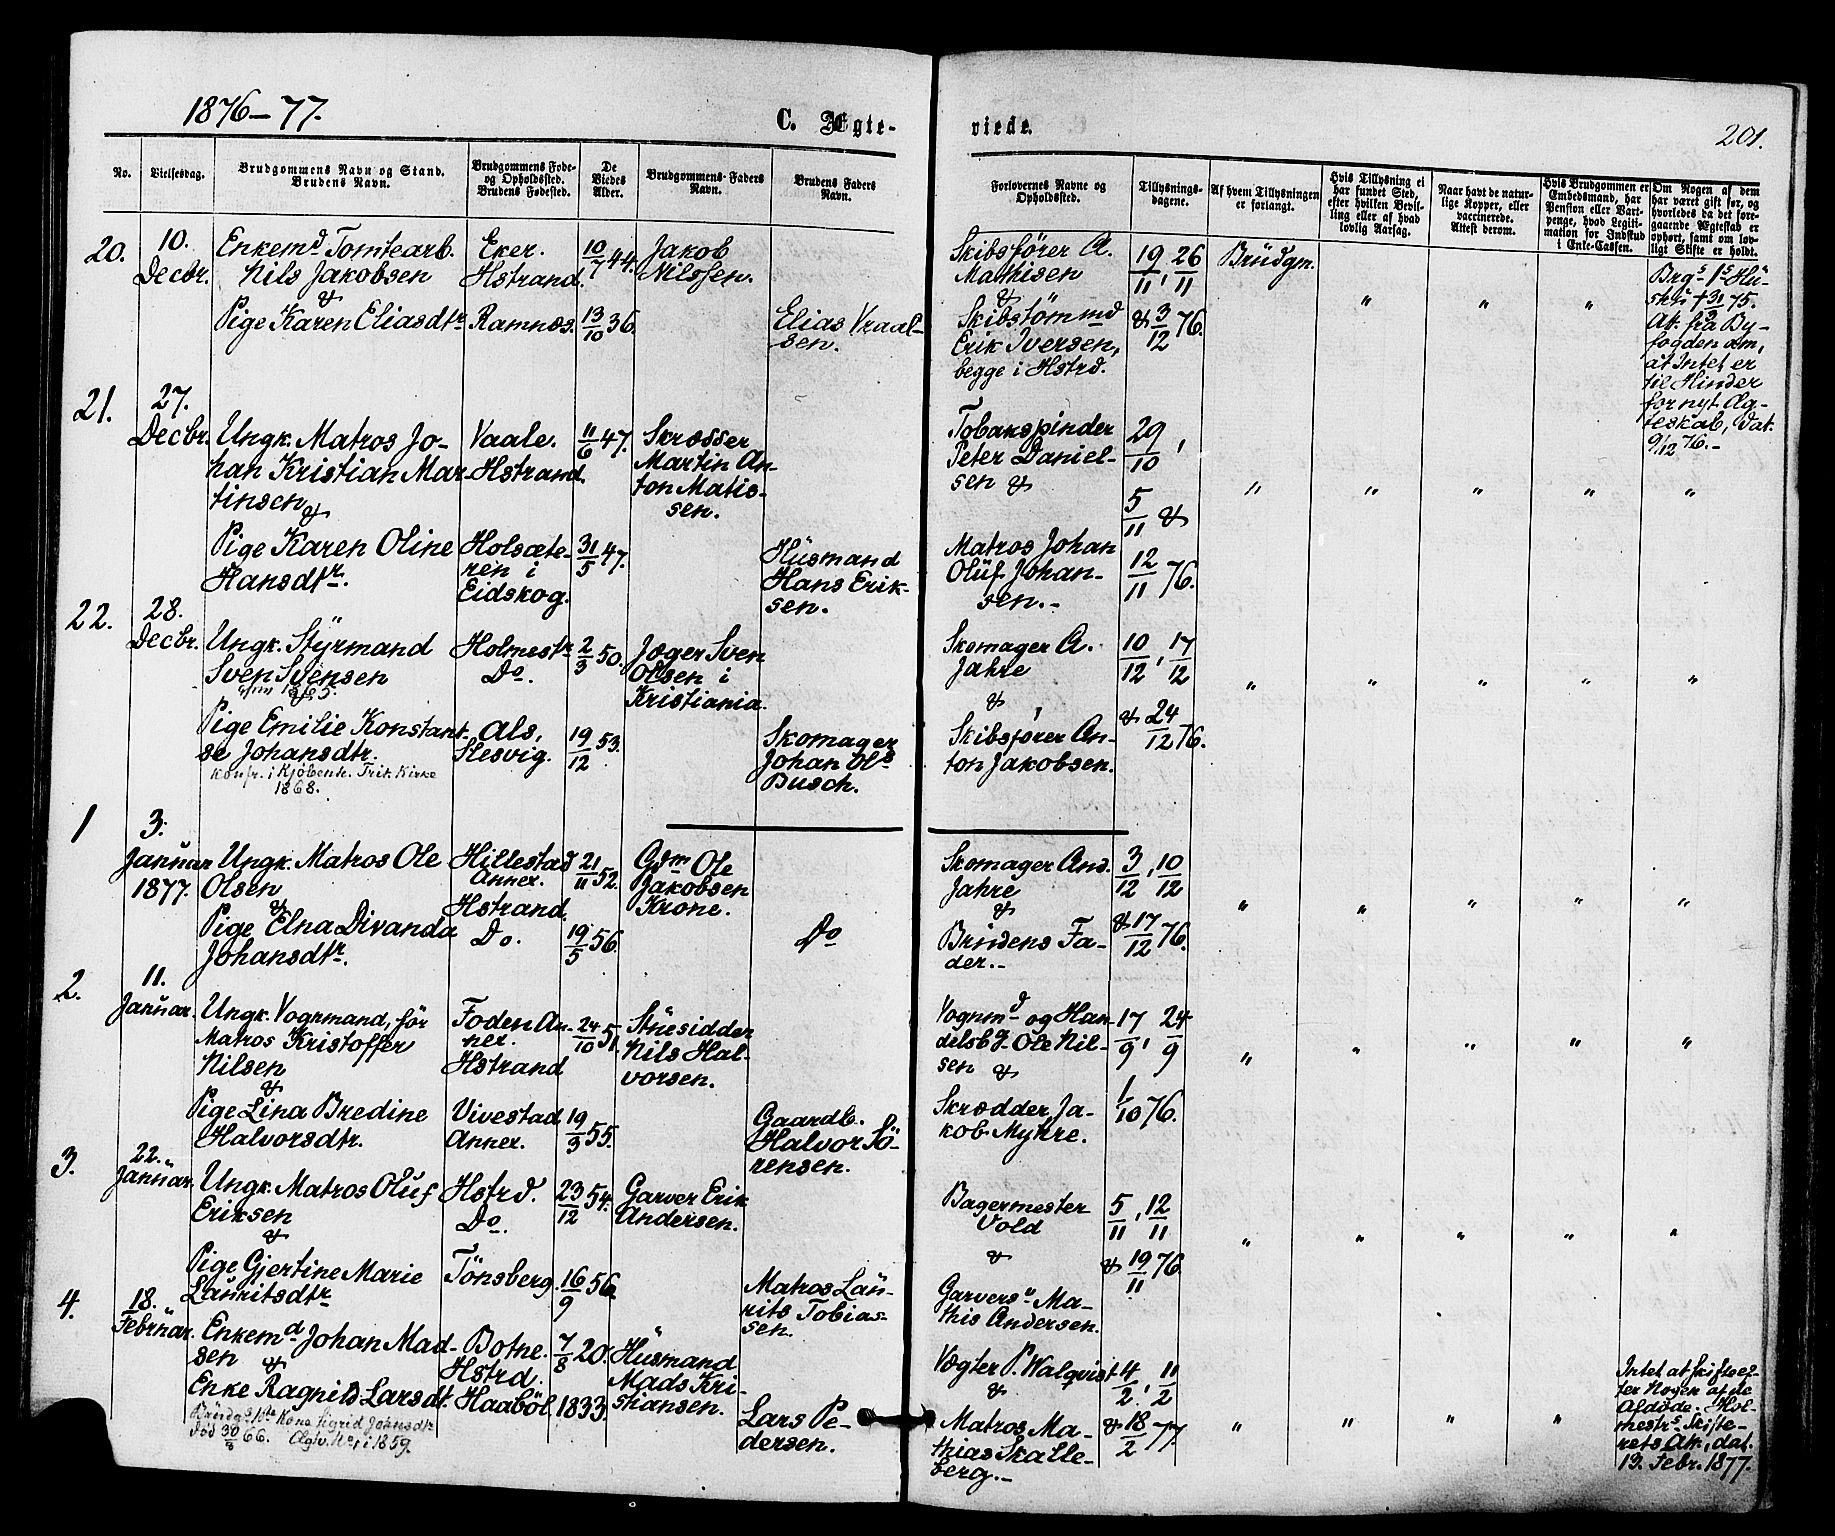 1876-77.
C. Ægte-
viede.
201.
No.
Vielsesdag.
Brudgommens Navn og Stand.
Brudens Navn.
Brudgommens Føde-
og Opholdssted.
Brudens Fødested.
De
Viedes
Alder.
Brudgommens Faders
Navn.
Brudens Faders
Navn.
Forlovernes Navne og
Opholdssted.
Tillysnings-
dagene.
Af hvem Tillysningen
er forlangt.
Hvis Tillysning ei
har fundet Sted,
efter hvilken Bevil-
ling eller af hvad
lovlig Aarsag.
Naar havt de natur-
lige Kopper, eller
vaccinerede.
Attest derom.
Hvis Brudgommen er
Embedsmand, har
Pension eller Vart-
penge, hvad Legiti-
mation for Indskud
i Enke-Cassen.
Om Nogen af dem
har været gift før, og
hvorledes da det fore-
gaaende Ægteskab er
ophørt, samt om lov-
ligt Skifte er holdt.
20.
10.
Decbr.
Enkemd Tomtearb.
Nils Jakobsen
&
Pige Karen Eliasdtr
Eker.
Hstrand.
Ramnæs.
10/7 44.
13/10 36.
Jakob
Nilssen.
Elias Vraal-
sen.
Skibsfører A.
Mathisen
&
Skibstømmd
Erik Iversen,
begge i Hstrd.
19/11, 26/11
& 3/12 76.
Brüdgm.
" " "
Brgs 1s Hü-
strü † 31/3 75.
Att. fra By-
fogden om,
at Intet er
til Hinder
for nyt Æg-
teskab, dat.
9/12 76.-
21.
27.
Decbr.
Ungk. Matros Jo-
han Kristian Mar-
tinsen
&
Pige Karen Oline
Hansdtr.
Vaale.
Hstrand.
Holsæte-
ren i
Eidskog.
11/6 47.
31/5 47.
Skræsser
Martin An-
ton Matis-
sen.
Hüsmand
Hans Erik-
sen.
Tobakspinder
Peter Daniel-
sen &
Matros Johan
Olüf Johan-
sen.-
29/10,
5/11 &
12/11 76.
" " " " "
22.
28.
Decbr.
Ungk. Styrmand
Sven Svensen
Pige Emilie Konstant-
se Johansdtr.
Konfr. i Kjöbenh. Trik. Kirke
1868.
Holmestr.
Do.
Als,
Slesvig.
2/3 50.
19/12 53.
Jæger Sven
Olsen i
Kristiania.
Skomager
Johan Ols
Busch.
Skomager A.
Jahre
&
Skibsfører An-
ton Jakobsen.
10/12, 17/12
& 24/12 76.
" " " " "
1
3.
Januar
1877.
Ungk. Matros Ole
Olsen
&
Pige Elna Divanda
Johansdtr.
Hillestad
Anner.
Hstrand.
Do.
21/11 52.
19/5 56.
Gdm Ole
Jakobsen
Krone.
Do
Skomager And.
Jahre
&
Brüdens Fa-
der.-
3/12, 10/12
& 17/12 76.
" " " " "
2.
11.
Januar.
Ungk. Vognmand, før
Matros Kristoffer
Nilsen
&
Pige Lina Bredine
Halvorsdtr.
Foden An-
ner.
Hstrand
Vivestad
Anner.
24/10 51.
19/3 55.
Stüesidder
Nils Hal-
vorsen.
Gaardb.
Halvor Sö-
rensen.
Vognmd og Han-
delsbg. Ole Nil-
sen &
Skrædder Ja-
kob Myhre.
17/9, 24/9
1/10 76.
" " " " "
3.
22.
Januar.
Ungk. Matros Oluf
Eriksen
&
Pige Gjertine Marie
Lauritsdtr
Hstrd.
Do.
Tönsberg.
23/12 54.
16/9 56.
Garver Erik
Andersen.
Matros Lau-
rits Tobias-
sen.
Bagermester
Vold
&
Garversv Ma-
this Andersen.
5/11, 12/11
& 19/11 76
" " " " "
4.
18.
Februar.
Enkemd Johan Mad-
sen &
Enke Ragnild Larsdt.
Brüdgs 1ste Kone Sigrid Johnsdtr
död 30/3 66. Ægtv. No 1 i 1859.
Botne.
Hstrd.
Haaböl.
7/8 20.
1833.
Hüsmand
Mads Kri-
stiansen.
Lars Pe-
dersen.
Vægter P. Walqvist
&
Matros Ma-
thias Skalle-
berg.-
4/2, 11/2
& 18/2 77.
" " " "
Intet at skifte ef-
ter Nogen af de
Afdöde. Hol-
mestrs Skifte-
rets Att., dat.
13. Febr. 1877.